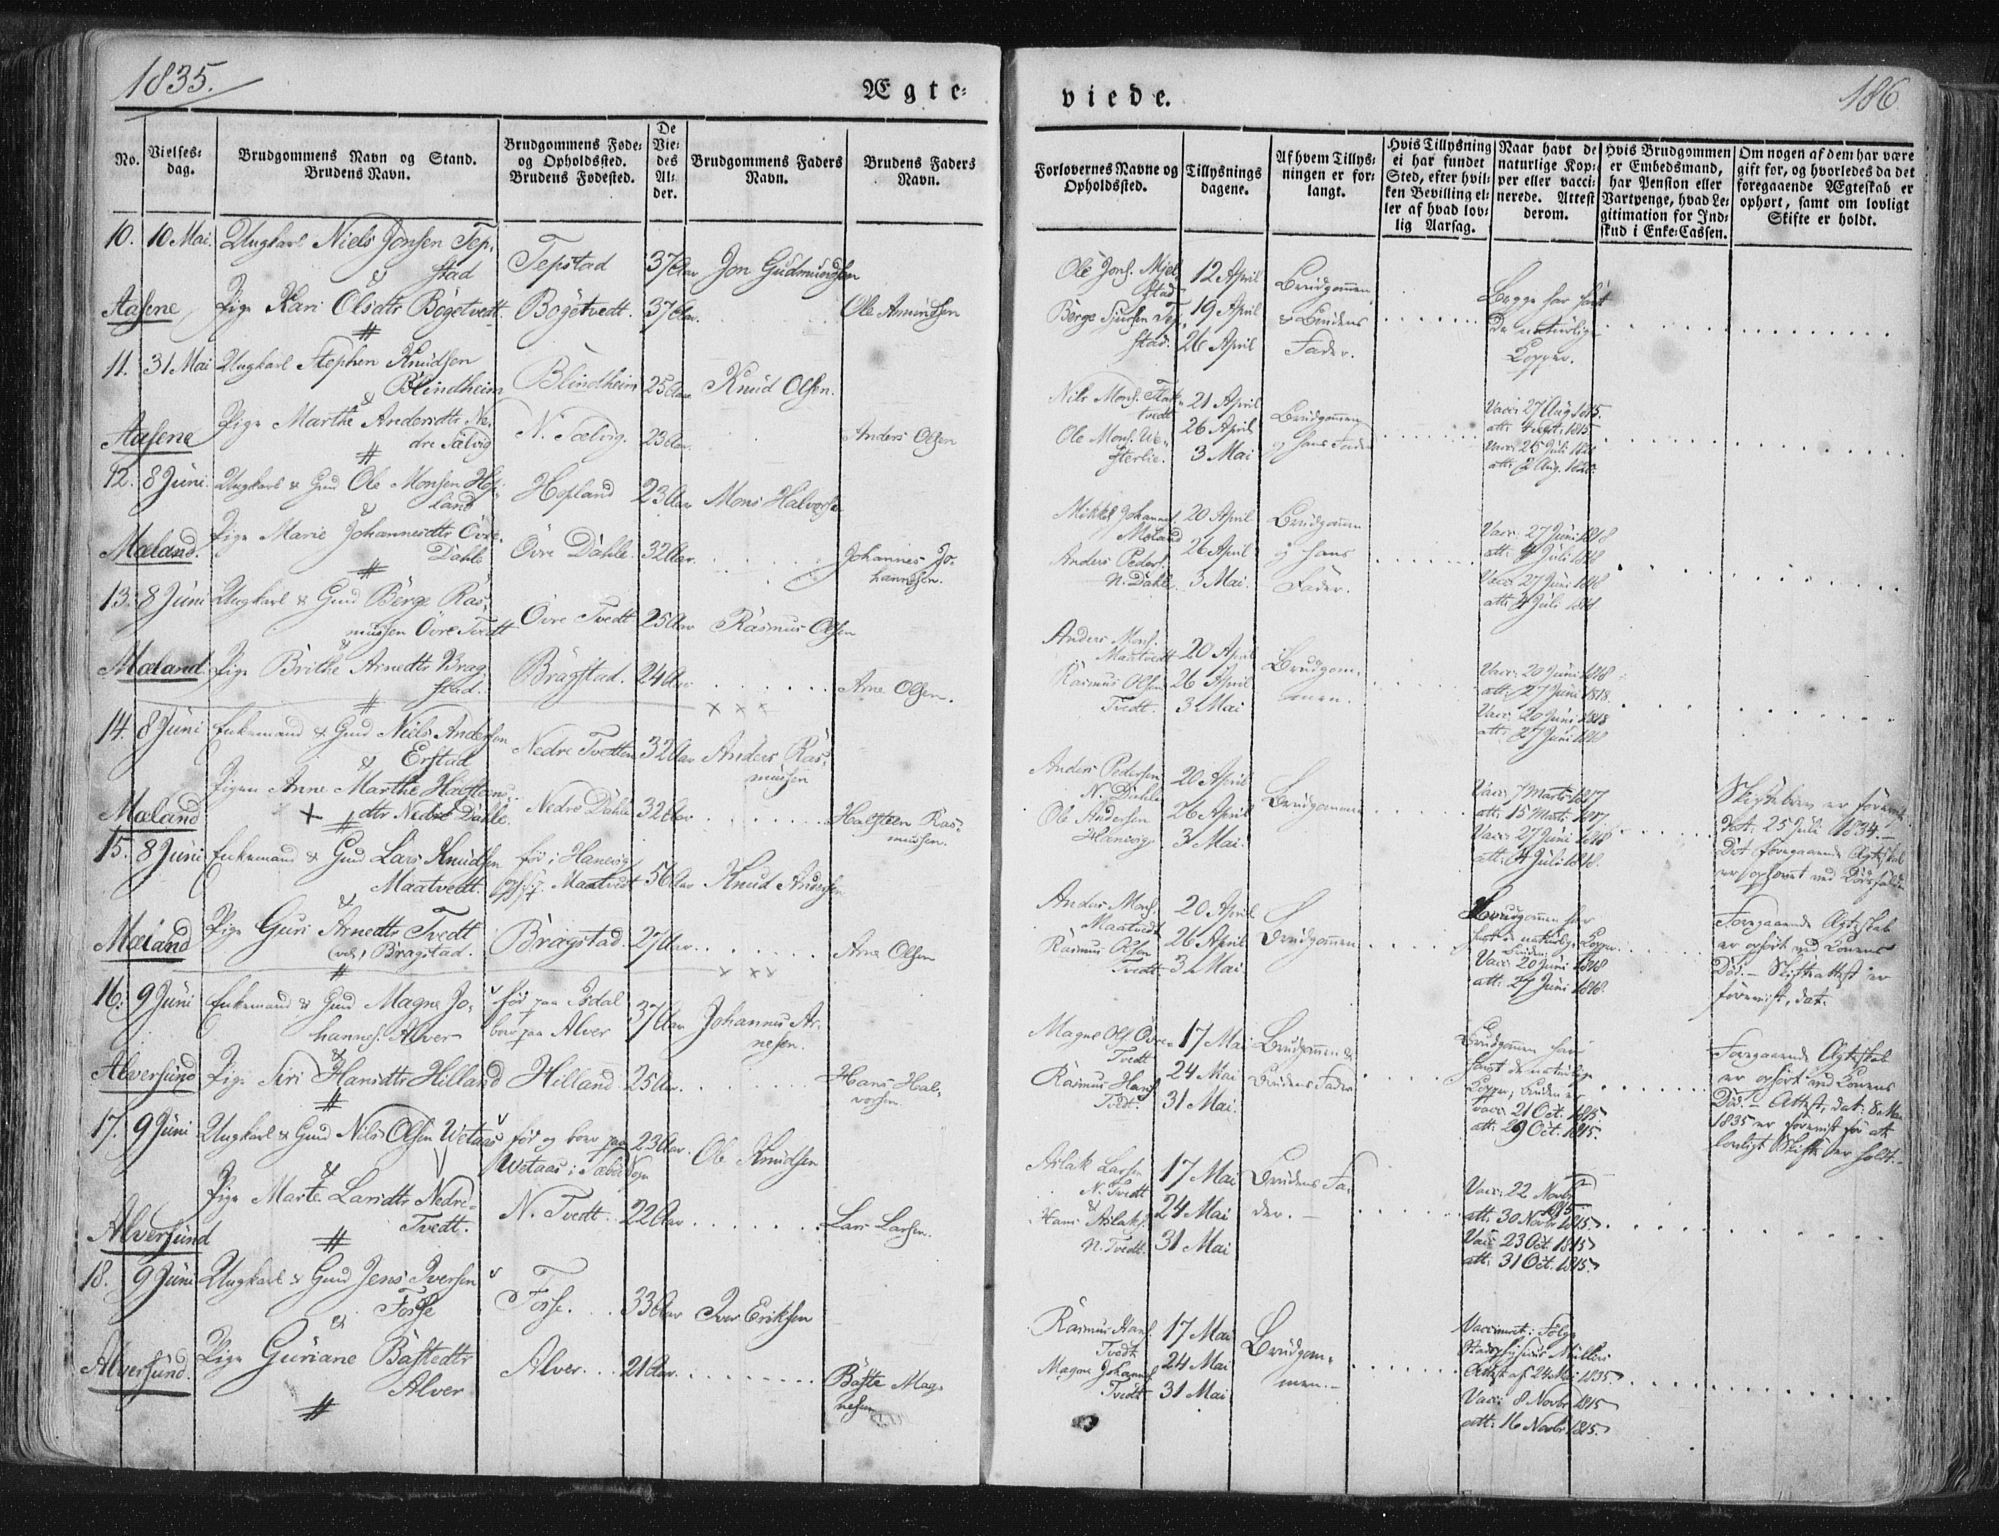 1835.
Ægte-
viede.
186
No.
Vielses-
dag.
Brudgommens Navn og Stand.
Brudens Navn.
Brudgommens Føde-
og Opholdssted.
Brudens Fødested.
De
Vie-
des
Al-
der.
Brudgommens Faders
Navn.
Brudens Faders
Navn.
Forlovernes Navne og
Opholdssted.
Tillysnings
dagene.
Af hvem Tillys-
ningen er for-
langt.
Hvis Tillysning
ei har fundet
Sted, efter hvil-
ken Bevilling el-
ler af hvad lov-
lig Aarsag.
Naar havt de
naturlige Kop-
per eller vacci-
nerede. Attest
derom.
Hvis Brudgommen
er Embedsmand,
har Pension eller
Vartpenge, hvad Le-
gitimation for Ind-
skud i Enke-Cassen.
Om nogen af dem har være
gift før, og hvorledes da det
foregaaende Ægteskab er
ophørt, samt om lovligt
Skifte er holdt.
10. 10 Mai. Ungkarl Niels Jonsen Tep-
stad
Tepstad 37 Aar Jon Gudmundsen
&
Aasene Pige Kari Olsdtr Bögetvedt Bögetvedt. 37 Aar. Ole Amundsen
Ole Jons. Mjel-
stad
Börge Sjursen Tep-
stad.
12 April
19 April
26 April
Brudgommen
& Brudens
Fader.
Begge har havt
de naturlige
Kopper.
11. 31 Mai Ungkarl Stephen Knudsen
Blindheim
Blindheim 25 Aar Knud Olsen.
&
Aasene Pige Marthe Andersdtr Ne-
dre Tælvig
N. Tælvig. 23 Aar. Anders Olsen
Nils Mons.
Ole Mons.
21 April
26 April
3 Mai
Brudgommen
og hans Fader
Vacc: 27 Aug 1815.
12. 8 Juni. Ungkarl & Gmd Ole Monsen Hop-
land
Hopland 23 Aar Mons Halvorsen
&
Mæland. Pige Marie Johannesdtr Övre
Dahle
Övre Dahle. 32 Aar. Johannes Jo-
hannesen.
Mikkel Johannes.
Mæland
Anders Peders.
N. Dahle
20 April
26 April
3 Mai.
Brudgommen
og hans
Fader.
Vacc. 27 Juni 1818
att: 4 Juli 1818
Vacc. 27 Juni 1818
att: 4 Juli 1818
13. 8 Juni Ungkarl & Gmd Börge Ras-
mussen Övre Tvedt
Övre Tvedt 25 Aar Rasmus Olsen
&
Mæland. Pige Brithe Arnedtr Brag-
stad.
Bragstad. 24 Aar Arne Olsen.
Anders Mons.
Maatvedt
Rasmus Olsen
Tvedt.
20 April
26 April
3 Mai
Brudgom-
menen.
Vacc: 20 Juni 1818
att: 27 Juni 1818.
Vacc: 20 Juni 1818
att: 27 Juni 1818
14. 8 Juni Enkemand & Gmd Niels Andersen
Erstad
Nedre Tvedten 32 Aar Anders Ras-
mussen
&
Mæland Pigen Anne Marthe Halsteens-
dtr Nedre Dahle.
Nedre Dahle 32 Aar Halsteen Ras-
mussen.
Anders Pedersen
N. Dahle
Ole Andersen
Hanevig
20 April
26 April
3 Mai.
Brudgommen
Vacc: 7 Marts 1817
att: 15 Marts 1817.
Vacc: 27 Juni 1818
att: 4 Juli 1818.
Skiftebrev er forevist
dat: 25 Juli 1834.
Det foregaaende Ægteskab
er ophævet ved Dödsfald
15. 8 Juni Enkemand & Gmd Lars Knudsen
Maatvedt.
fød i Hanevig
Maatvedt 56 Aar Knud Andersen
&
Mæland Pige Guri Arnedtr Tvedt
Bragstad.
Bragstad. 27 Aar Arne Olsen
Anders Mons.
Maatvedt
Rasmus Olsen
Tvedt
20 April
26 April
3 Mai
Brudgommen
Brudgommen har
havt de naturlige Kopper.
Bruden:
Vacc: 20 Juni 1818
att: 27 Juni 1818.
Foregaaende Ægteskab
er ophört ved Konens
Död. Skifteattest er
forevist, dat.
16. 9 Juni Enkemand & Gmd Magne Jo-
hannes. Alver
fød paa Isdal
boer paa Alver
37 Aar Johannes Ar-
nesen.
&
Alversund Pige Siri Hansdtr Hilland Hilland 25 Aar. Hans Hal-
vorsen.
Magne Ols. Övre
Tvedt
Rasmus Hans.
Tvedt.
17 Mai
24 Mai
31 Mai.
Brudgommen &
Brudens Fader
Brudgommen har
havt de naturlige
Kopper, Bruden er
vacc: 21 Oct. 1815
att: 29 Oct. 1815.
Foregaaende Ægteskab
er ophört ved Konens
Död. Attest, dat: 8 Mai
1835 er forevist for at
lovligt Skifte er holdt.
17. 9 Juni Ungkarl & Gmd Nils Olsen Wetaas
fød og boer paa
Wetaas i Sæbø Sogn
23 Aar. Ole Knudsen
&
Alversund Pige Marte Larsdtr Nedre
Tvedt.
N. Tvedt. 22 Aar Lars Larsen.
Aslak Larsen
N. Tvedt
&
Hans Aslaks.
N. Tvedt.
17 Mai
24 Mai
31 Mai
Brudens Fa-
der.
Vacc: 22 Novbr
1815
att: 30 Novbr 1815
Vacc: 23 Oct. 1815
att: 31 Oct. 1815.
18. 9 Juni Ungkarl & Gmd Jens Iversen
Fosse
Fosse. 33 Aar Iver Eriksen
&
Alversund. Pige Guriane Bastedtr
Alver
Alver. 21 Aar. Baste Mag-
nesen
Rasmus Hans.
Tvedt
Magne Johannes.
Tvedt
17 Mai
24 Mai
31 Mai
Brudgom-
men.
Vaccineret ifølge
Stadsphysicus Müllers
Attest af 24 Mai 1835.
Vacc: 8 Novbr 1815
att: 16 Novbr 1815.